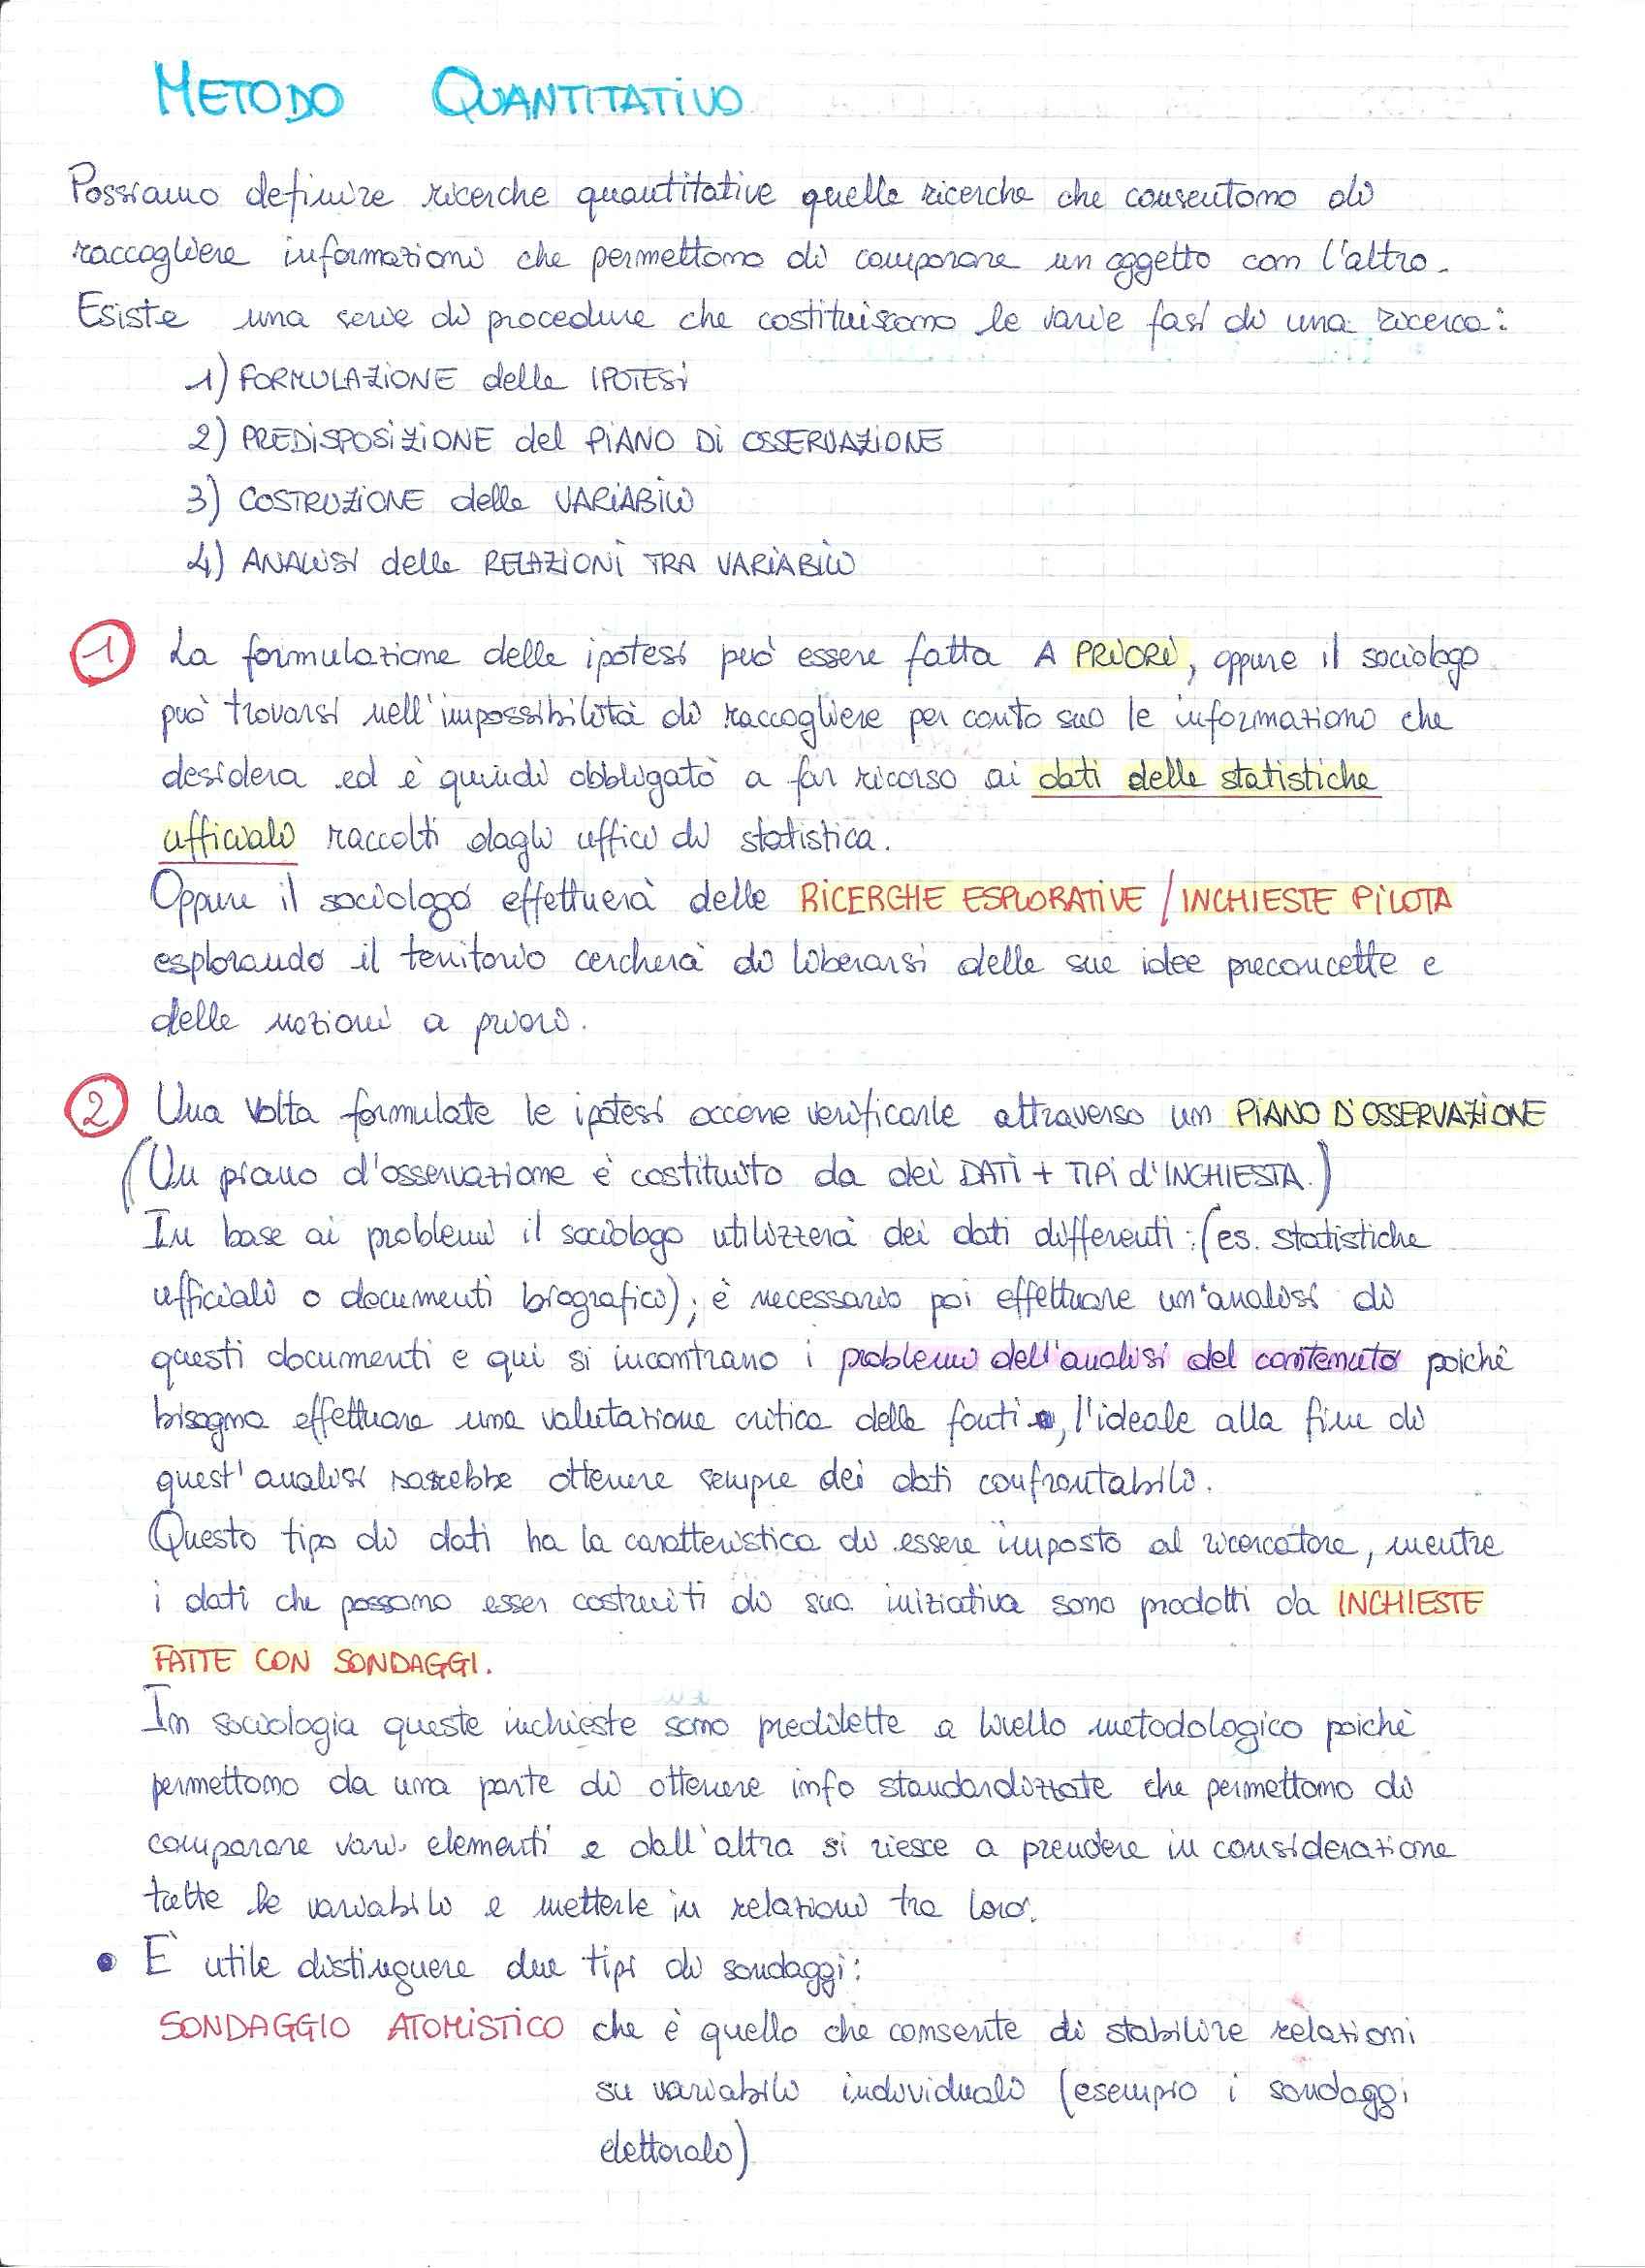 METODO QUANTITATIVO
Possiamo definire ricerche quantitative quelle ricerche che consentono di
raccogliere informazioni che permettono di comparare un oggetto con l'altro.
Esiste una serie di procedure che costituiscono le varie fasi di una ricerca:
1) FORMULAZIONE delle IPOTESI
2) PREDISPOSIZIONE del PIANO DI OSSERVAZIONE
3) COSTRUZIONE delle VARIABILI
4) ANALISI delle RELAZIONI TRA VARIABILI
1 La formulazione delle ipotesi può essere fatta A PRIORI, oppure il sociologo
può trovarsi nell'impossibilità di raccogliere per conto suo le informazioni che
desidera ed è quindi obbligato a far ricorso ai dati delle statistiche
ufficiali raccolti dagli uffici di statistica.
Oppure il sociologo effettuerà delle RICERCHE ESPLORATIVE / INCHIESTE PILOTA
esplorando il territorio cercherà di liberarsi delle sue idee preconcette e
delle nozioni a priori.
2 Una volta formulate le ipotesi occorre verificarle attraverso un PIANO D'OSSERVAZIONE
(Un piano d'osservazione è costituito da dei DATI + TIPI d'INCHIESTA.)
In base ai problemi il sociologo utilizzerà dei dati differenti: (es. statistiche
ufficiali o documenti biografici); è necessario poi effettuare un'analisi di
questi documenti e qui si incontrano i problemi dell'analisi del contenuto poichè
bisogna effettuare una valutazione critica delle fonti, l'ideale alla fine di
quest'analisi sarebbe ottenere sempre dei dati confrontabili.
Questo tipo di dati ha la caratteristica di essere imposto al ricercatore, mentre
i dati che possono esser costruiti di sua iniziativa sono prodotti da INCHIESTE
FATTE CON SONDAGGI.
In sociologia queste inchieste sono predilette a livello metodologico poichè
permettono da una parte di ottenere info standardizzate che permettono di
comparare vari elementi e dall'altra si riesce a prendere in considerazione
tutte le variabili e metterle in relazioni tra loro.
• È utile distinguere due tipi di sondaggi:
SONDAGGIO ATOMISTICO che è quello che consente di stabilire relazioni
su variabili individuali (esempio i sondaggi
elettorali)